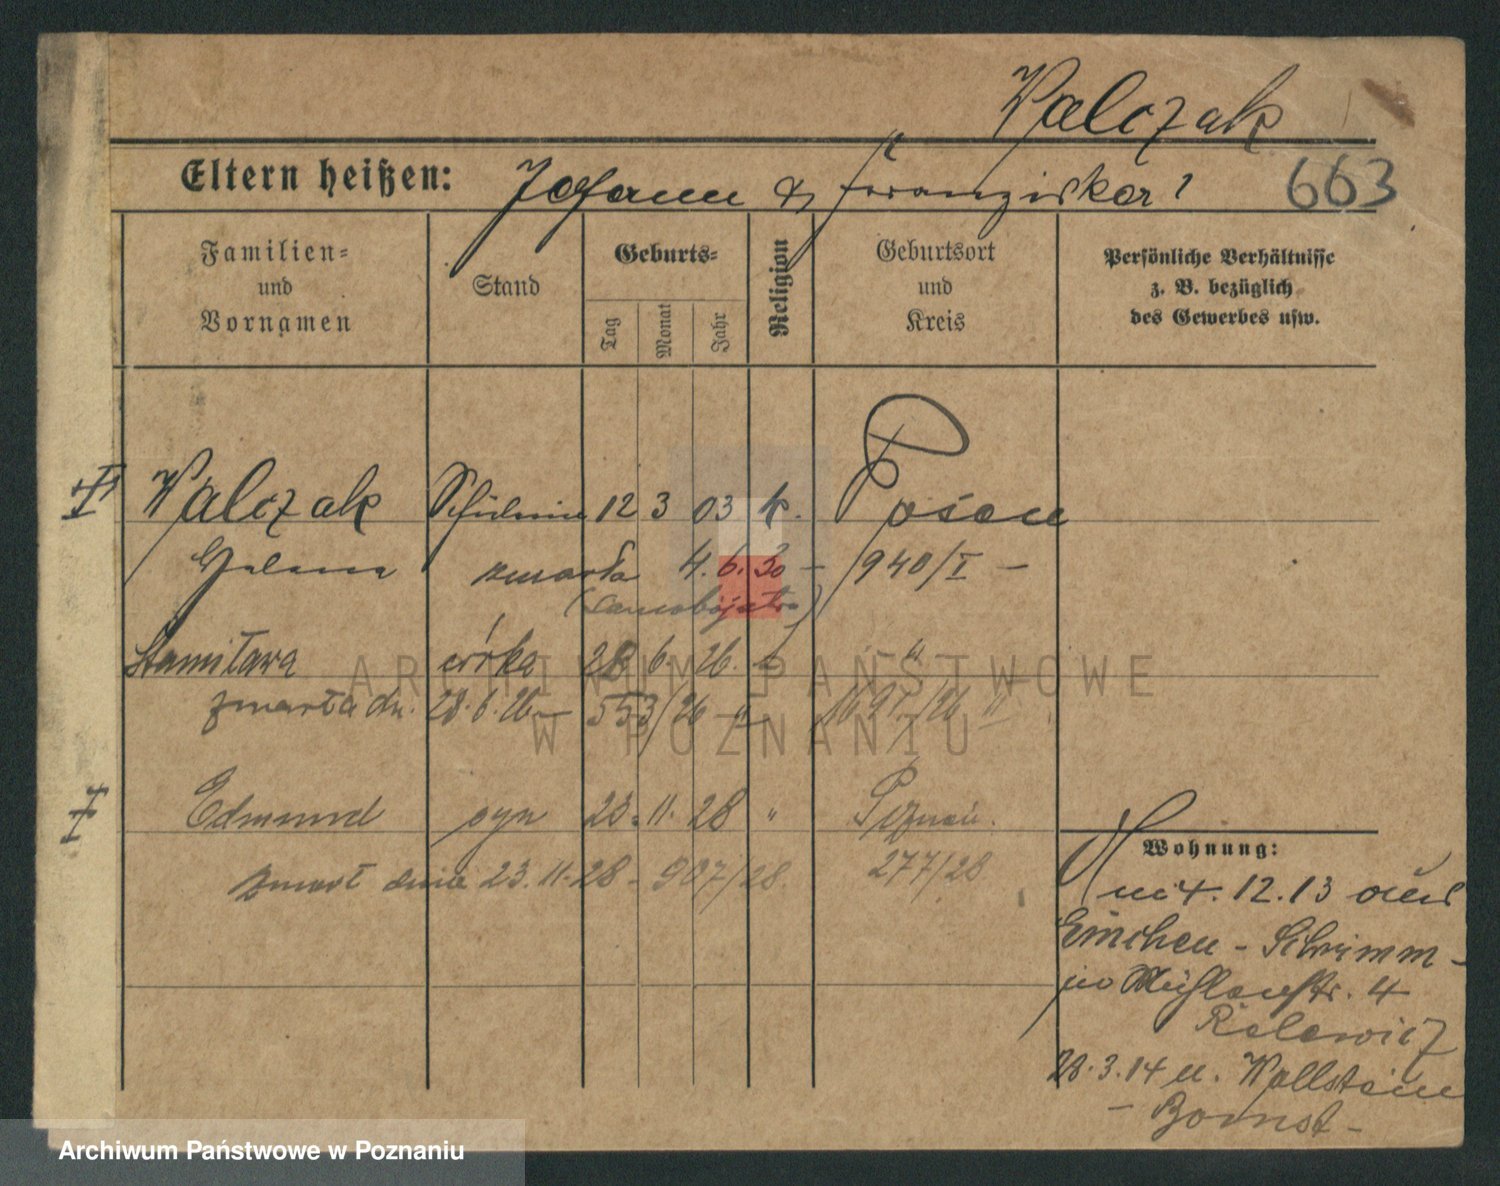 Walczak
Eltern heißen: Johann & Franziska
663
Familien=
und
Vornamen
Stand
Geburts=
Tag
Monat
Jahr
Religion
Geburtsort
und
Kreis
Persönliche Verhältnisse
z. B. bezüglich
des Gewerbes usw.
Walczak Schülerin 12 3 03 k. Posen
Helena zmarła 4.6.30 – 940/I –
(samobójstwo)
Stanisława córka 28 6. 26. „
zmarła dn. 28.6.26 – 553/26 „
Edmund syn 23. 11. 28 „ Poznań.
zmarł dnia 23.11.28 – 907/28. 277/28
Wohnung:
4. 12. 13 aus
– Schrimm –
Mühlenstr. 4
28.3.14 n. Wollstein
– Bomst –
ARCHIWUM PAŃSTWOWE
W POZNANIU
Archiwum Państwowe w Poznaniu